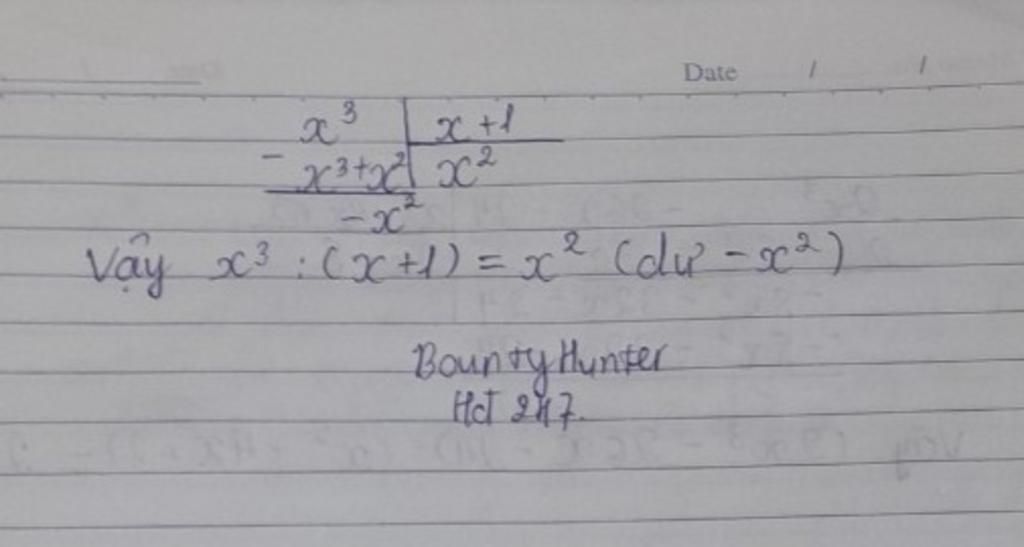 Date / /
x³ | x+1
- x³+x² | x²
-x²
Vậy x³ : (x+1) = x² (dư -x²)
BountyHunter
Hct 247.